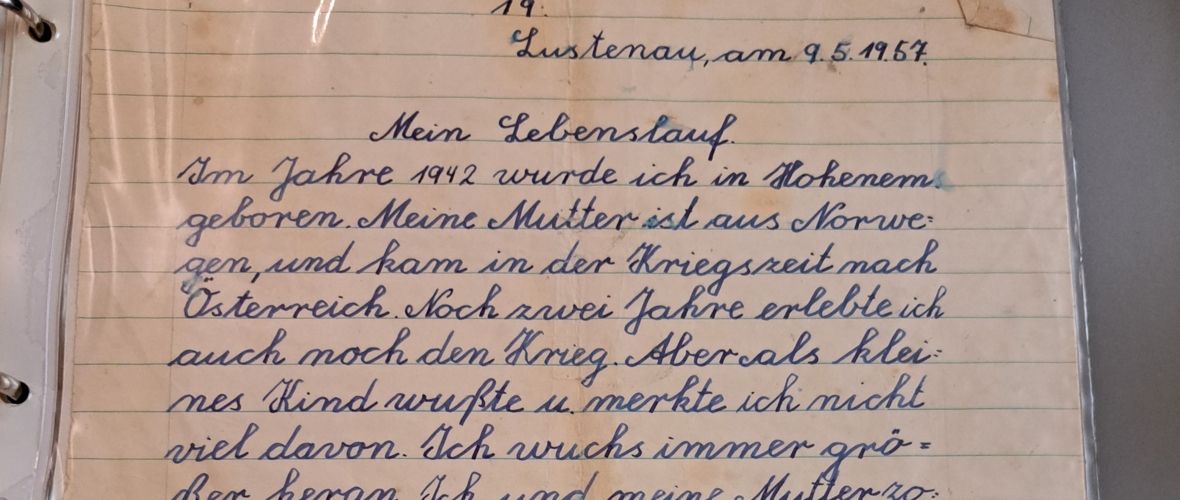 19.
Lustenau, am 9.5.1957.
Mein Lebenslauf.
Im Jahre 1942 wurde ich in Hohenems
geboren. Meine Mutter ist aus Norwe=
gen, und kam in der Kriegszeit nach
Österreich. Noch zwei Jahre erlebte ich
auch noch den Krieg. Aber als klei=
nes Kind wußte u. merkte ich nicht
viel davon. Ich wuchs immer grö=
ßer heran. Ich und meine Mutter zo=